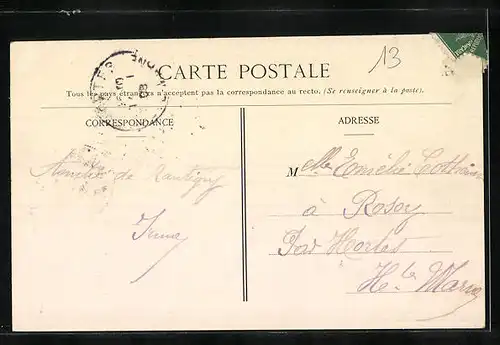 13
CARTE POSTALE
Tous les pays étrangers n'acceptent pas la correspondance au recto. (Se renseigner à la poste).
CORRESPONDANCE
ADRESSE
Amitiés de
Irma
Mlle Emélie
à Rosoy
Par Hortes
Hte Marne